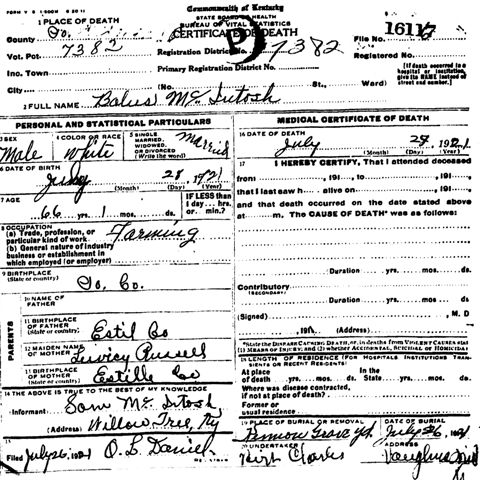 FORM V S 1-500M
Commonwealth of Kentucky
STATE BOARD OF HEALTH
BUREAU OF VITAL STATISTICS
CERTIFICATE OF DEATH
1 PLACE OF DEATH
County
File No. 16117
Vot. Pct. 7382
Registration District No. 7382
Registered No.
Inc. Town
Primary Registration District No.
City
(No. St., Ward)
(If death occurred in a hospital or institution, give its NAME instead of street and number.)
2 FULL NAME Balus McIntosh
PERSONAL AND STATISTICAL PARTICULARS
MEDICAL CERTIFICATE OF DEATH
3 SEX Male
4 COLOR OR RACE White
5 SINGLE, MARRIED, WIDOWED, OR DIVORCED (Write the word) Married
16 DATE OF DEATH July 1921
(Month) (Day) (Year)
6 DATE OF BIRTH 28
(Month) (Day) (Year)
17 I HEREBY CERTIFY, That I attended deceased
from 191 to 191
that I last saw h alive on 191
and that death occurred on the date stated above
at m. The CAUSE OF DEATH* was as follows:
7 AGE 66 yrs. 1 mos. ds.
IF LESS than 1 day... hrs. or min.?
8 OCCUPATION
(a) Trade, profession, or particular kind of work Farming
(b) General nature of industry business or establishment in which employed (or employer)
Duration yrs. mos. ds.
9 BIRTHPLACE (State or country) Co.
Contributory (SECONDARY)
Duration yrs. mos. ds.
PARENTS
10 NAME OF FATHER
(Signed) M. D
191 (Address)
11 BIRTHPLACE OF FATHER (State or country) Estil Co
*State the DISEASE CAUSING DEATH, or, in deaths from VIOLENT CAUSES state (1) MEANS OF INJURY; and (2) whether ACCIDENTAL, SUICIDAL or HOMICIDAL
12 MAIDEN NAME OF MOTHER Russell
13 BIRTHPLACE OF MOTHER (State or country) Estille Co
18 LENGTH OF RESIDENCE (FOR HOSPITALS INSTITUTIONS TRANSIENTS OR RECENT RESIDENTS)
At place of death yrs. mos. ds. State yrs. mos. ds.
Where was disease contracted, if not at place of death?
Former or usual residence
14 THE ABOVE IS TRUE TO THE BEST OF MY KNOWLEDGE
Informant Sam McIntosh
(Address) Willow Tree, Ky
19 PLACE OF BURIAL OR REMOVAL
DATE OF BURIAL July 26, 1921
15
Filed July 26, 1921 O. L. Daniel
UNDERTAKER Hugh Charles
ADDRESS